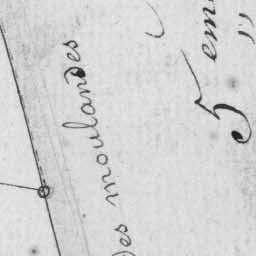 des moulandes
5 eme